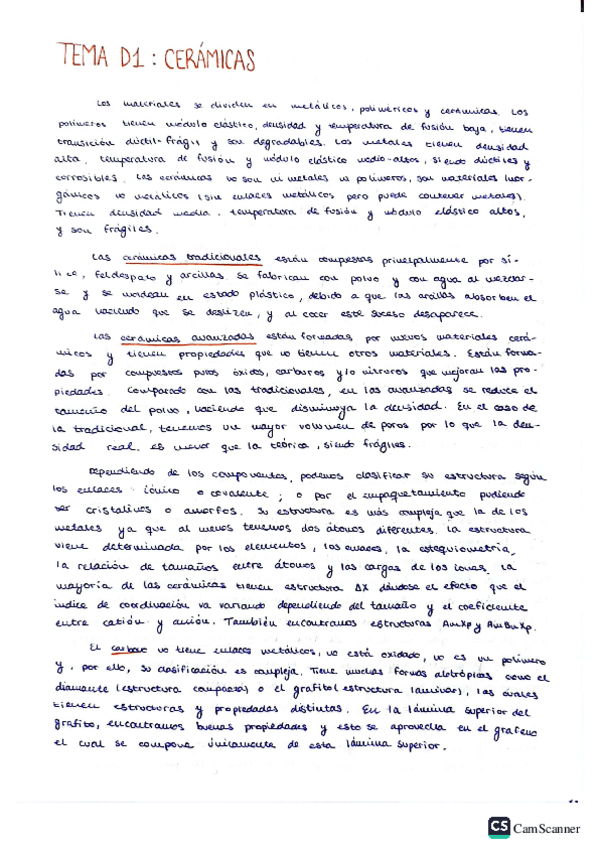 TEMA D1 : CERÁMICAS
Los materiales se dividen en metálicos, poliméricos y cerámicas. Los
polímeros tienen módulo elástico, densidad y temperatura de fusión baja, tienen
transición dúctil-frágil y son degradables. Los metales tienen densidad
alta, temperatura de fusión y módulo elástico medio-altos, siendo dúctiles y
corrosibles. Las cerámicas no son ni metales ni polímeros, son materiales inor-
gánicos no metálicos (sin enlaces metálicos pero puede contener metales).
Tienen densidad media, temperatura de fusión y módulo elástico altos,
y son frágiles.
Las cerámicas tradicionales están compuestas principalmente por sí-
lice, feldespato y arcillas. Se fabrican con polvo y con agua al mezclar-
se y se moldean en estado plástico, debido a que las arcillas absorben el
agua haciendo que se deslizen, y al cocer este suceso desaparece.
Las cerámicas avanzadas están formadas por nuevos materiales cerá-
micos y tienen propiedades que no tienen otros materiales. Están forma-
das por compuestos puros óxidos, carburos y/o nitruros que mejoran las pro-
piedades. Comparado con las tradicionales, en las avanzadas se reduce el
tamaño del polvo, haciendo que disminuya la densidad. En el caso de
la tradicional, tenemos un mayor volumen de poros por lo que la den-
sidad real es menor que la teórica, siendo frágiles.
Dependiendo de los componentes, podemos clasificar su estructura según
los enlaces iónico o covalente; o por el empaquetamiento pudiendo
ser cristalinos o amorfos. Su estructura es más compleja que la de los
metales ya que al menos tenemos dos átomos diferentes. La estructura
viene determinada por los elementos, los enlaces, la estequiometría,
la relación de tamaños entre átomos y las cargas de los iones. La
mayoría de las cerámicas tienen estructura AX dándose el efecto que el
índice de coordinación va variando dependiendo del tamaño y el coeficiente
entre catión y anión. También encontramos estructuras AmXp y AmBnXp.
El carbono no tiene enlaces metálicos, no está oxidado, no es un polímero
y, por ello, su clasificación es compleja. Tiene muchas formas alotrópicas como el
diamante (estructura compacta) o el grafito (estructura laminar), las cuales
tienen estructuras y propiedades distintas. En la lámina superior del
grafito, encontramos buenas propiedades y esto se aprovecha en el grafeno
el cual se compone únicamente de esta lámina superior.
CS CamScanner